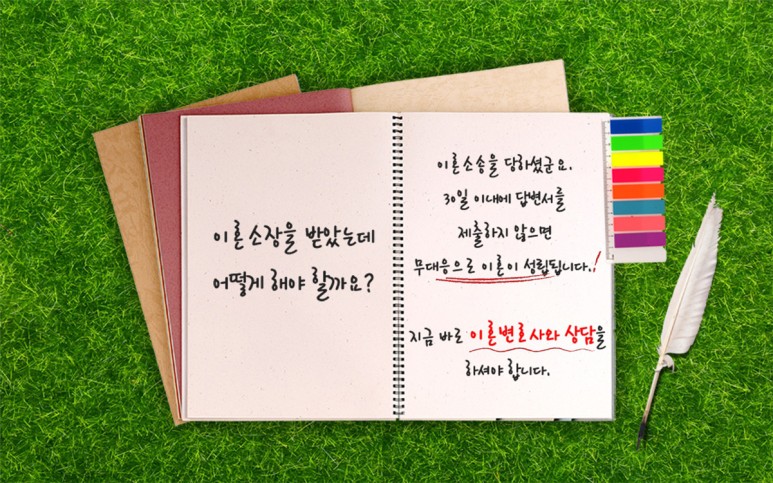 이혼 소장을 받았는데
어떻게 해야 할까요?
이혼소송을 당하셨군요.
30일 이내에 답변서를
제출하지 않으면
무대응으로 이혼이 성립됩니다.!
지금 바로 이혼변호사와 상담을
하셔야 합니다.